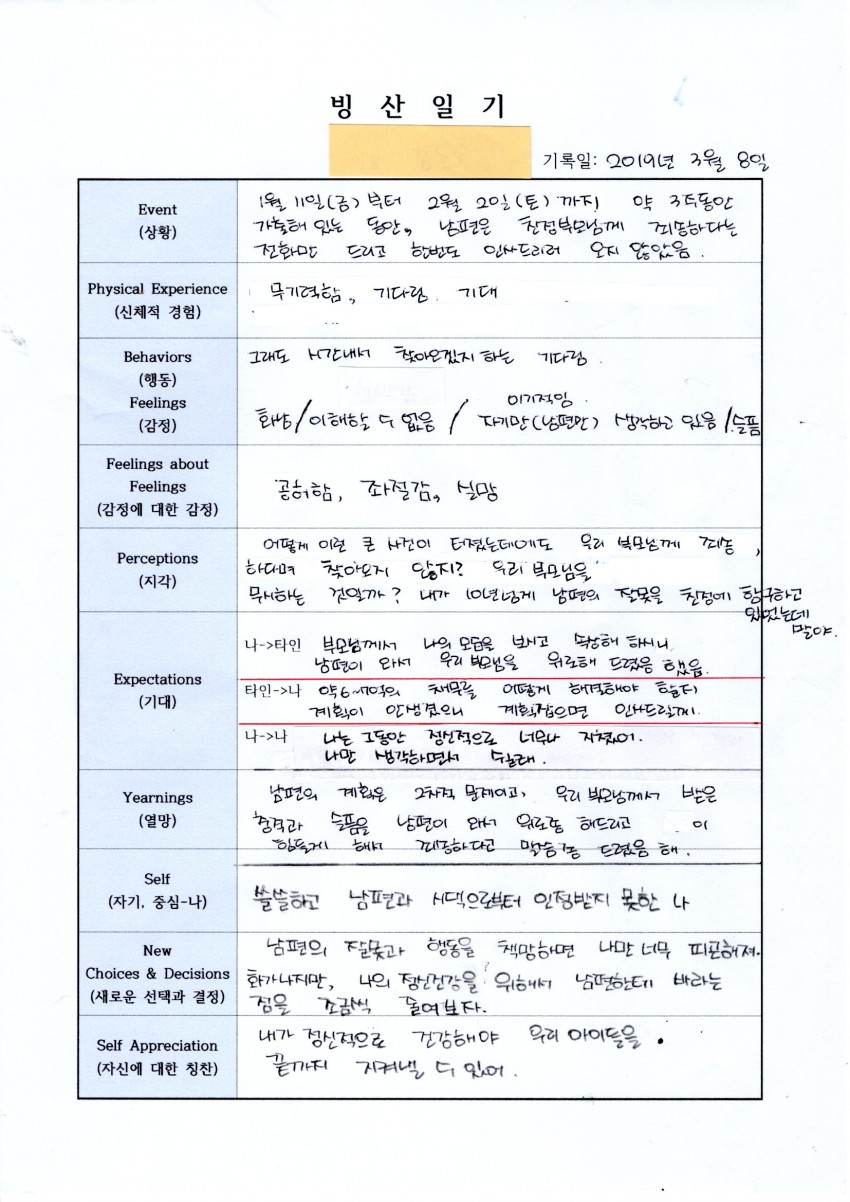 빙 산 일 기
기록일: 2019년 3월 8일
Event
(상황)
1월 11일(금) 부터 2월 2일(토) 까지 약 3주동안
가출해 있는 동안, 남편은 친정부모님께 죄송하다는
전화만 드리고 한번도 인사드리러 오지 않았음.
Physical Experience
(신체적 경험)
무기력함, 기다림. 기대
Behaviors
(행동)
그래도 시간내서 찾아오겠지 하는 기다림.
Feelings
(감정)
이기적임.
화남/이해할 수 없음 / 자기만(남편만) 생각하고 있음 /슬픔
Feelings about
Feelings
(감정에 대한 감정)
공허함, 좌절감, 실망
Perceptions
(지각)
어떻게 이런 큰 사건이 터졌는데에도 우리 부모님께 죄송
하다며 찾아오지 않지? 우리 부모님을
무시하는 것일까? 내가 10년넘게 남편의 잘못을 친정에 함구하고
있었는데
말야.
Expectations
(기대)
나->타인 부모님께서 나의 모습을 보시고 속상해 하시니
남편이 와서 우리 부모님을 위로해 드렸음 했음.
타인->나 약6~7억의 채무를 어떻게 해결해야 할지
계획이 안생겼으니 계획잡으면 인사드릴께.
나->나 나는 그동안 정신적으로 너무나 지쳤어.
나만 생각하면서 쉴래.
Yearnings
(열망)
남편의 계획은 2차적 문제이고, 우리 부모님께서 받은
충격과 슬픔을 남편이 와서 위로좀 해드리고 이
힘들게 해서 죄송하다고 말씀좀 드렸음 해.
Self
(자기, 중심-나)
쓸쓸하고 남편과 시댁으로부터 인정받지 못한 나
New
Choices & Decisions
(새로운 선택과 결정)
남편의 잘못과 행동을 책망하면 나만 너무 피곤해져.
화가나지만, 나의 정신건강을 위해서 남편한테 바라는
점을 조금씩 줄여보자.
Self Appreciation
(자신에 대한 칭찬)
내가 정신적으로 건강해야 우리 아이들을
끝까지 지켜낼 수 있어.